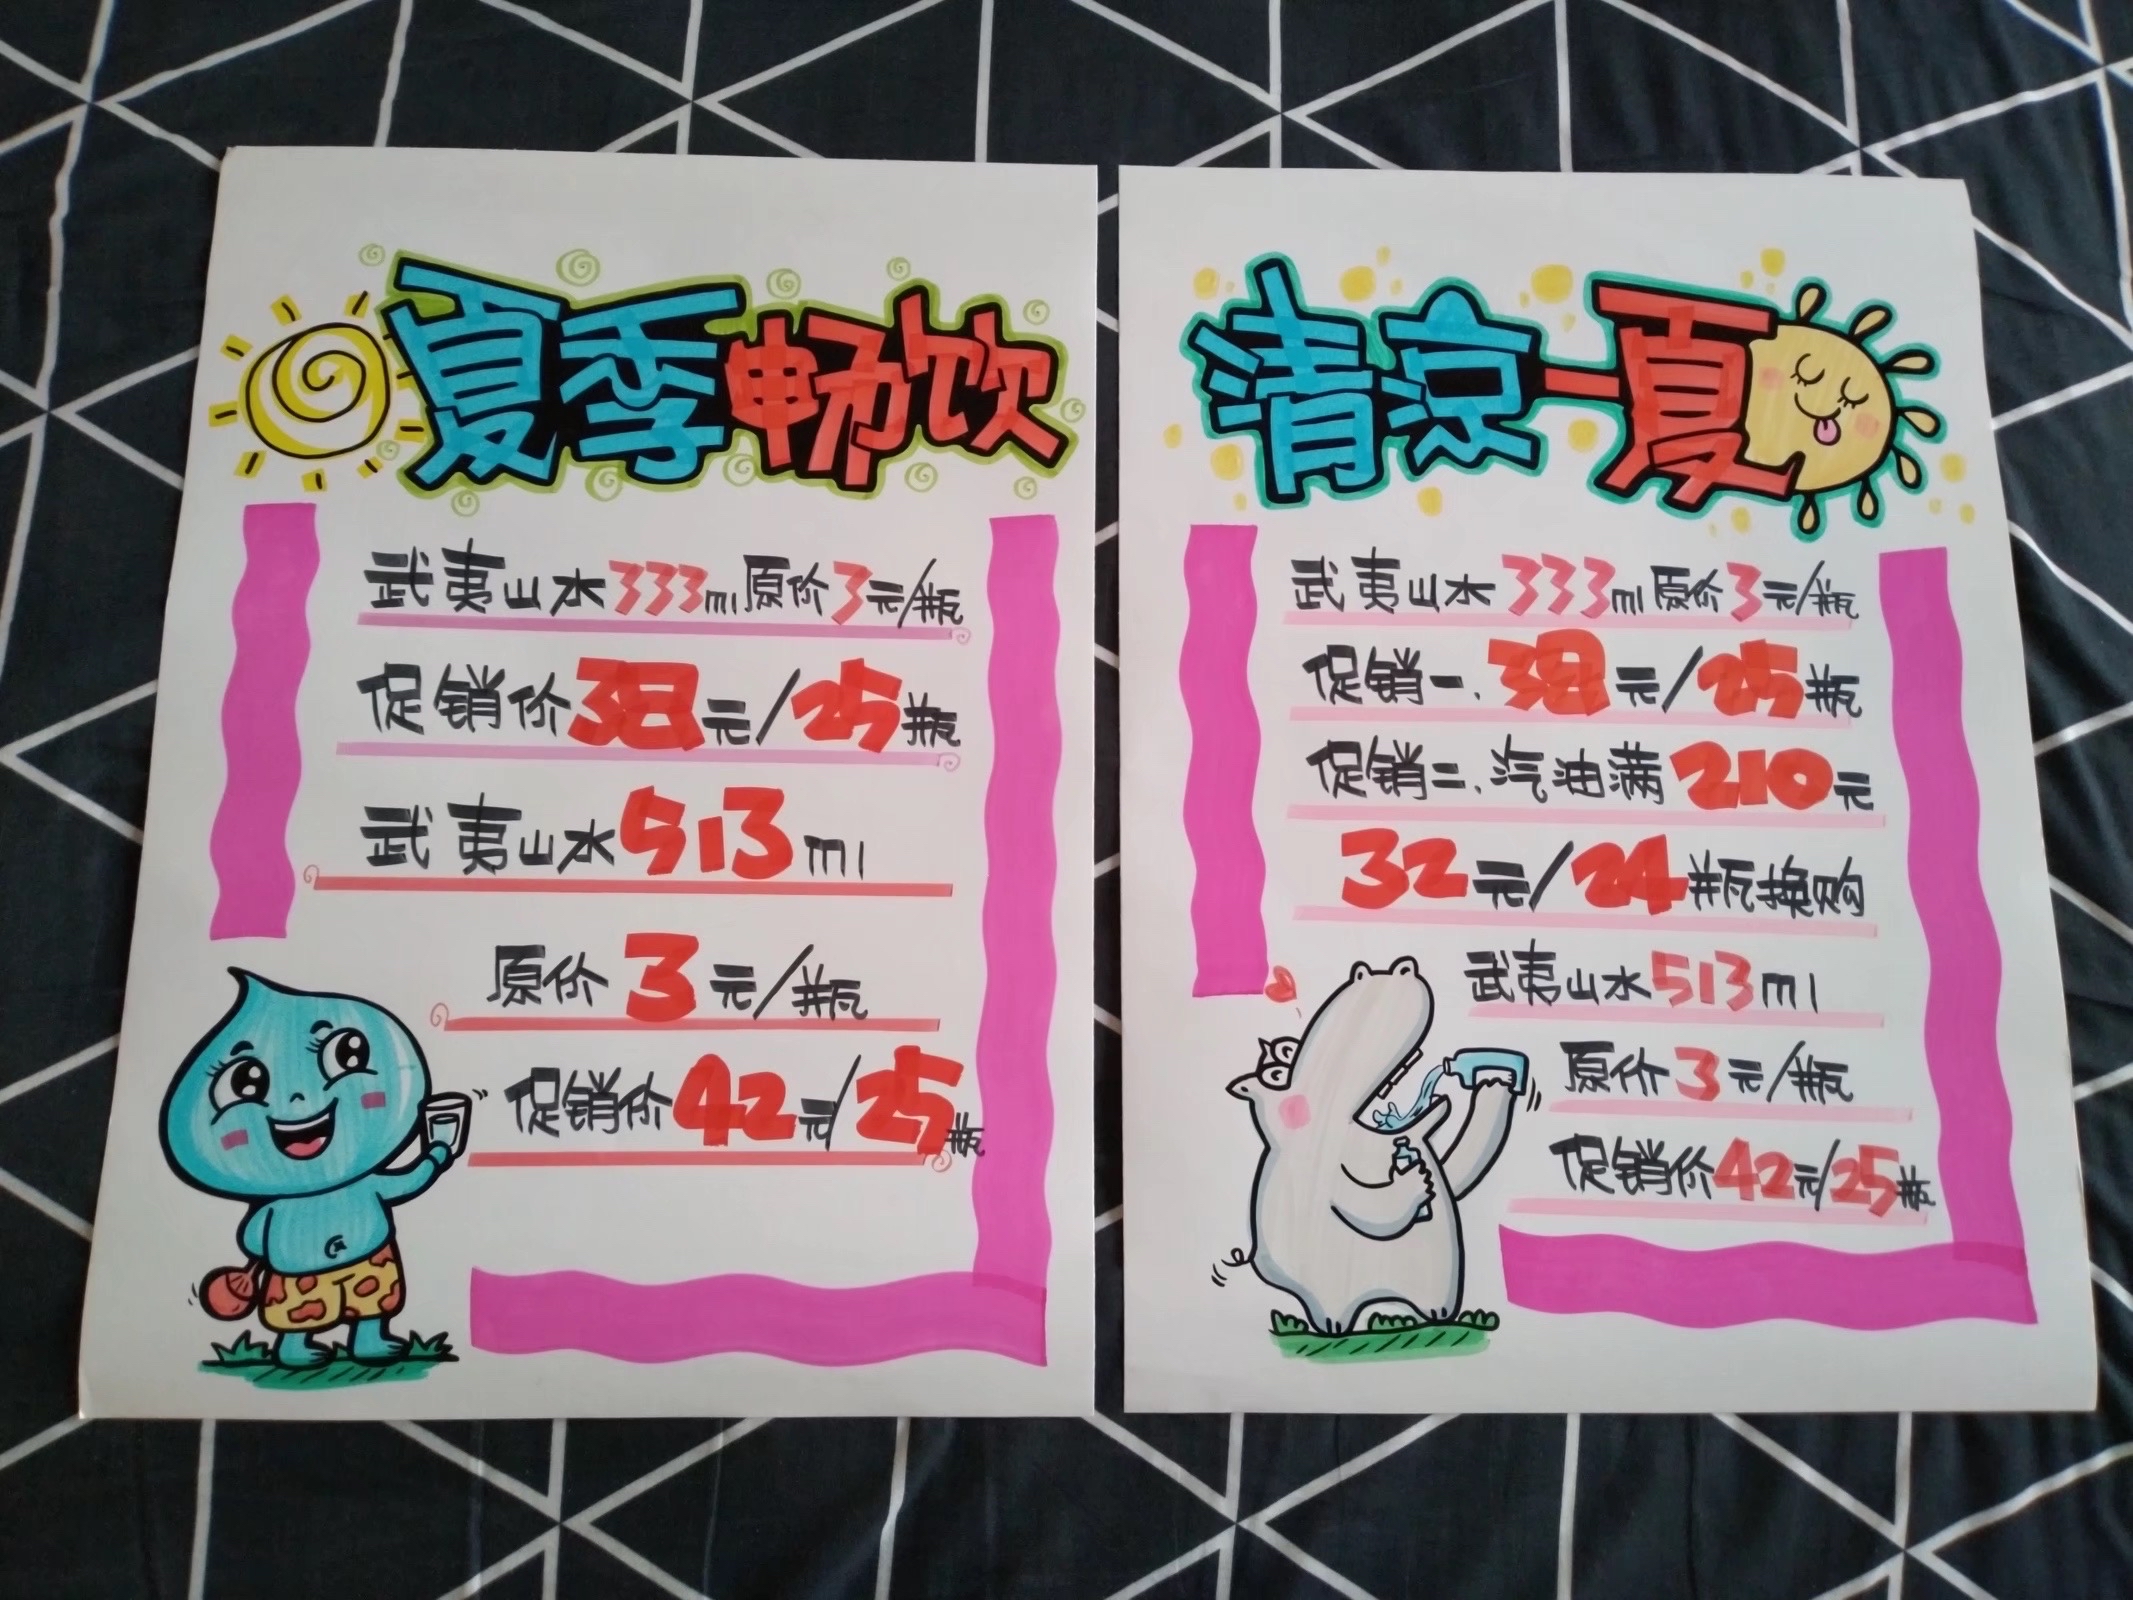 夏季畅饮
武夷山水333ml原价3元/瓶
促销价38元/25瓶
武夷山水513ml
原价3元/瓶
促销价42元/25瓶
清凉一夏
武夷山水333ml原价3元/瓶
促销一、38元/25瓶
促销二、汽油满210元
32元/24瓶换购
武夷山水513ml
原价3元/瓶
促销价42元/25瓶